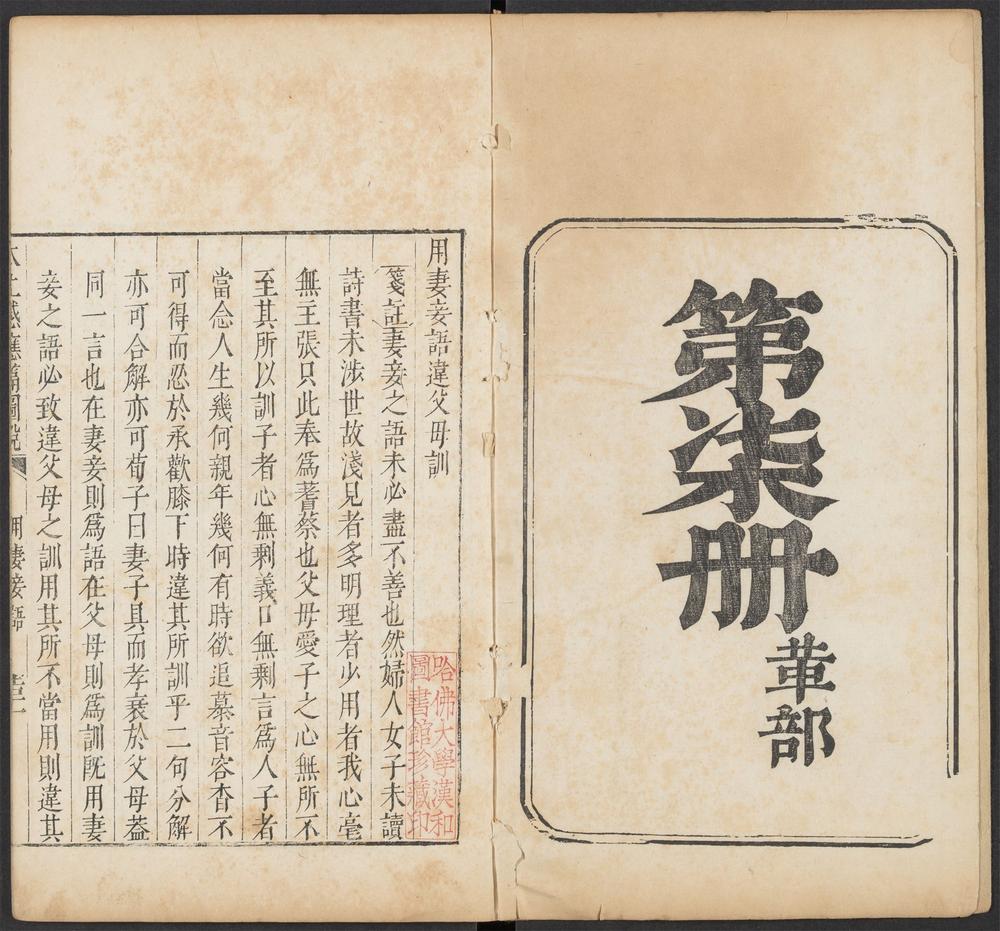 第柒册
革部
用妻妾語違父母訓
箋註妻妾之語未必盡不善也然婦人女子未讀
詩書未涉世故淺見者多明理者少用者我心毫
無主張只此奉為蓍蔡也父母愛子之心無所不
至其所以訓子者心無剩義口無剩言為人子者
當念人生幾何親年幾何有時欲追慕音容杳不
可得而忍於承歡膝下時違其所訓乎二句分解
亦可合解亦可荀子曰妻子具而孝衰於父母葢
同一言也在妻妾則為語在父母則為訓既用妻
妾之語必致違父母之訓用其所不當用則違其
太上感應篇圖說 用妻妾語
哈佛大學漢和
圖書館珍藏印